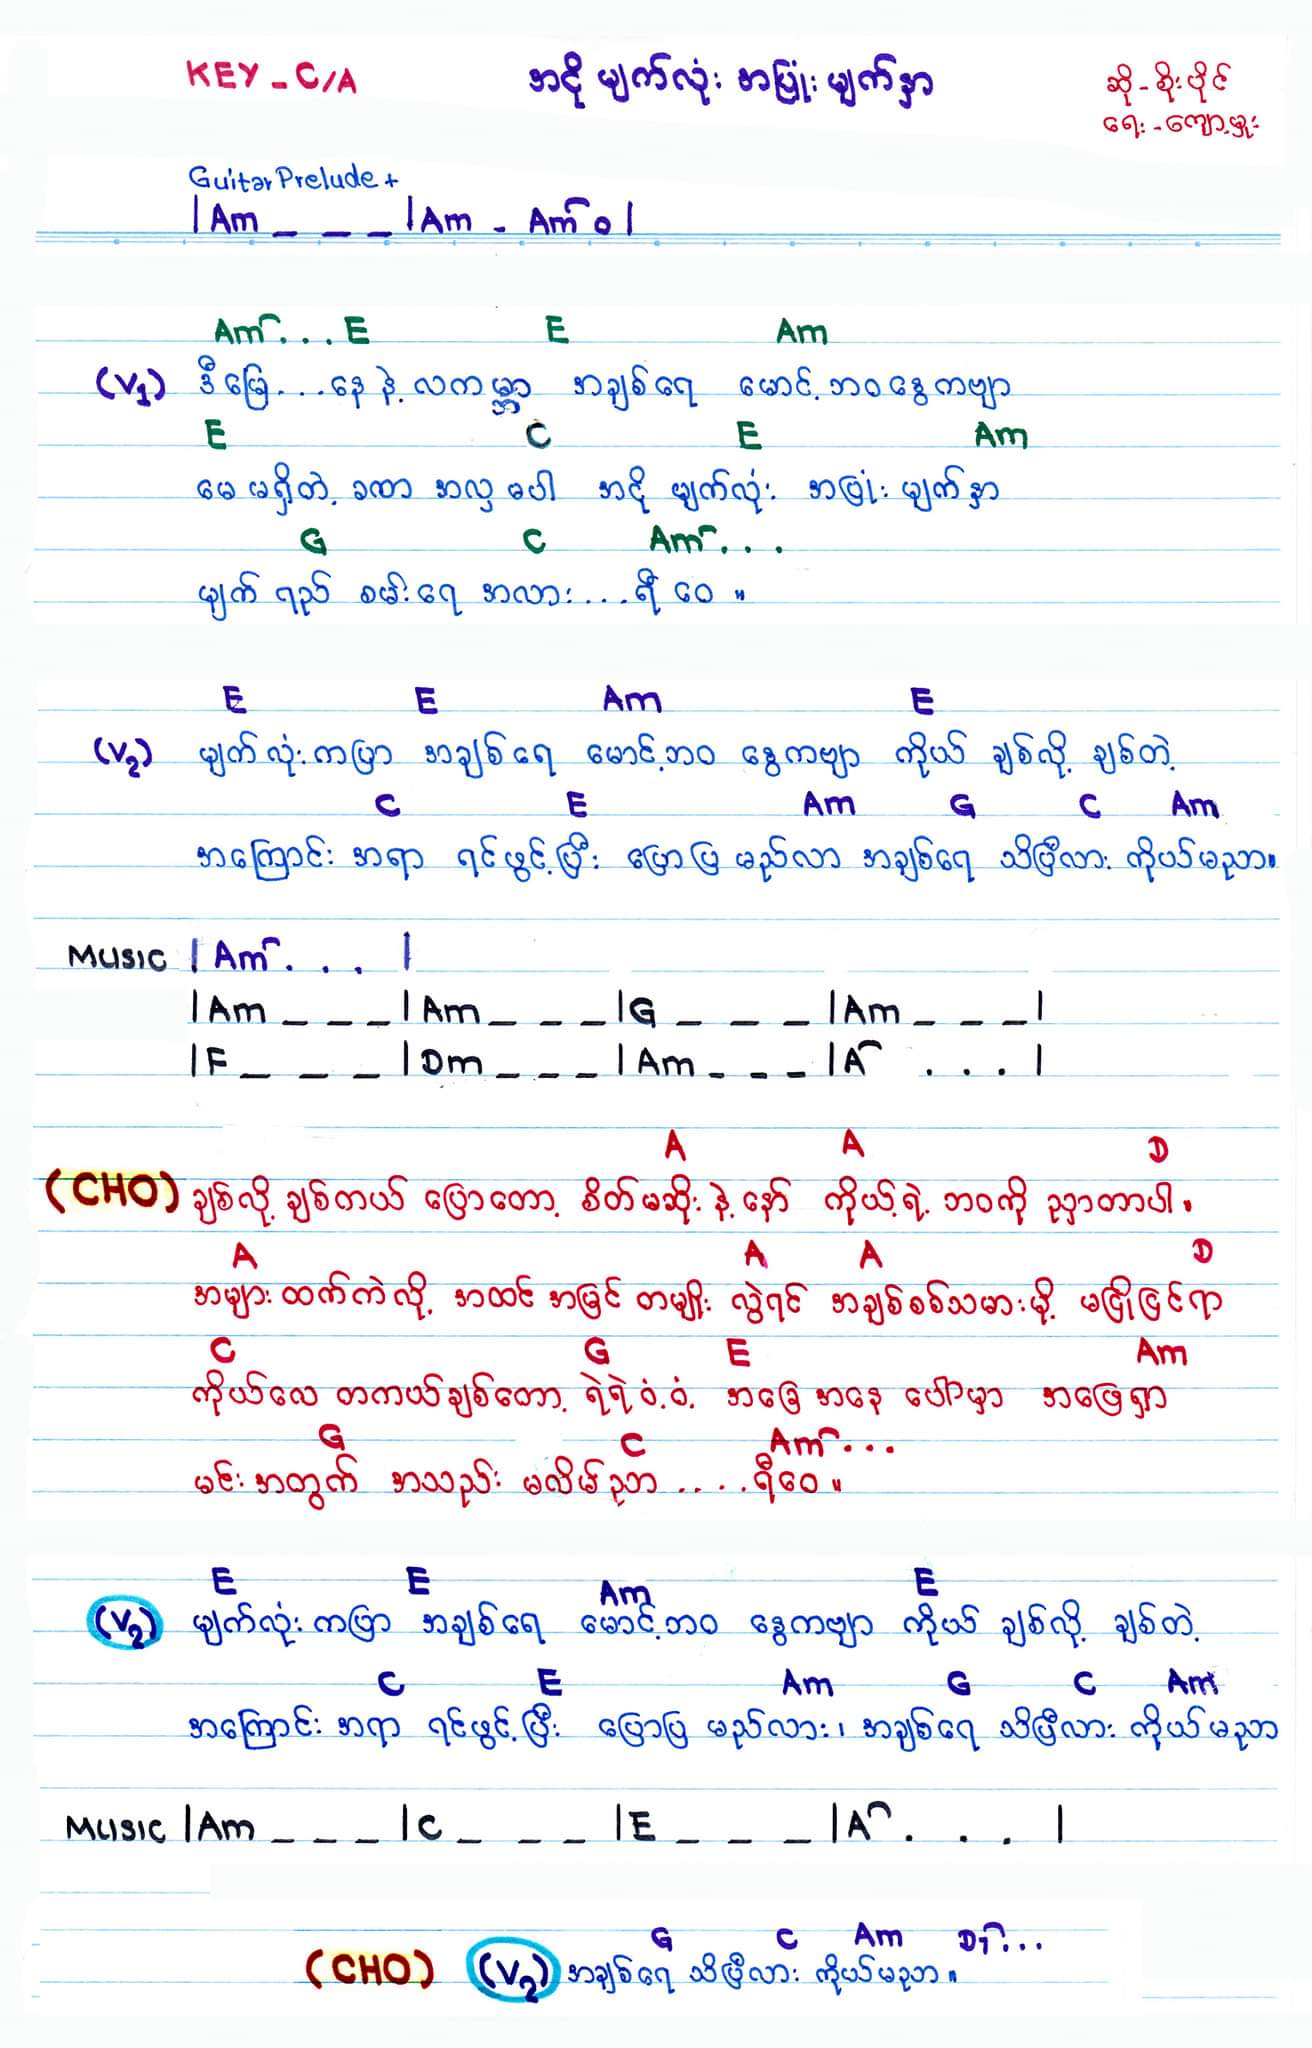 KEY - C/A
အငို မျက်လုံး အပြုံး မျက်နှာ
ဆို - စိုးပိုင်
ရေး - ကျော့မှူး
Guitar Prelude +
| Am _ _ _ | Am - Am o |
Am . . . E E Am
(V1) ဒီမြေ...နေ နဲ့ လကမ္ဘာ အချစ်ရေ မောင့်ဘဝ ဒွေကဗျာ
E C E Am
မေ မရှိတဲ့ ခဏာ အလှမပါ အငို မျက်လုံး အပြုံး မျက်နှာ
G C Am . . .
မျက်ရည် စမ်းရေ အလား...ရီ ဝေ ။
E E Am E
(V2) မျက်လုံးကပြာ အချစ်ရေ မောင့်ဘဝ ဒွေကဗျာ ကိုယ် ချစ်လို့ ချစ်တဲ့
C E Am G C Am
အကြောင်း အရာ ရင်ဖွင့်ပြီး ပြောပြ မည်လာ အချစ်ရေ သိပြီလား ကိုယ်မညာ။
MUSIC | Am . . . |
| Am _ _ _ | Am _ _ _ | G _ _ _ | Am _ _ _ |
| F _ _ _ | Dm _ _ _ | Am _ _ _ | A . . . |
A A D
(CHO) ချစ်လို့ ချစ်တယ် ပြောတော့ စိတ်မဆိုး နဲ့ နော် ကိုယ့်ရဲ့ ဘဝကို ညှာတာပါ ။
A A A D
အများ ထက်ကဲလို့ အထင် အမြင် တမျိုး လွဲရင် အချစ်စစ်သမားမို့ မငြိုငြင်ရာ
C G E Am
ကိုယ်လေ တကယ်ချစ်တော့ ရဲရဲဝံ့ဝံ့ အခြေ အနေ ပေါ်မှာ အဖြေရှာ
G C Am . . .
မင်းအတွက် အသည်း မလိမ်ညာ ....ရီဝေ ။
E E Am E
(V2) မျက်လုံးကပြာ အချစ်ရေ မောင့်ဘဝ ဒွေကဗျာ ကိုယ် ချစ်လို့ ချစ်တဲ့
C E Am G C Am
အကြောင်း အရာ ရင်ဖွင့်ပြီး ပြောပြ မည်လား၊ အချစ်ရေ သိပြီလား ကိုယ်မညာ
MUSIC | Am _ _ _ | C _ _ _ | E _ _ _ | A . . . |
G C Am D7 . . .
(CHO) (V2) အချစ်ရေ သိပြီလား ကိုယ်မညာ ။